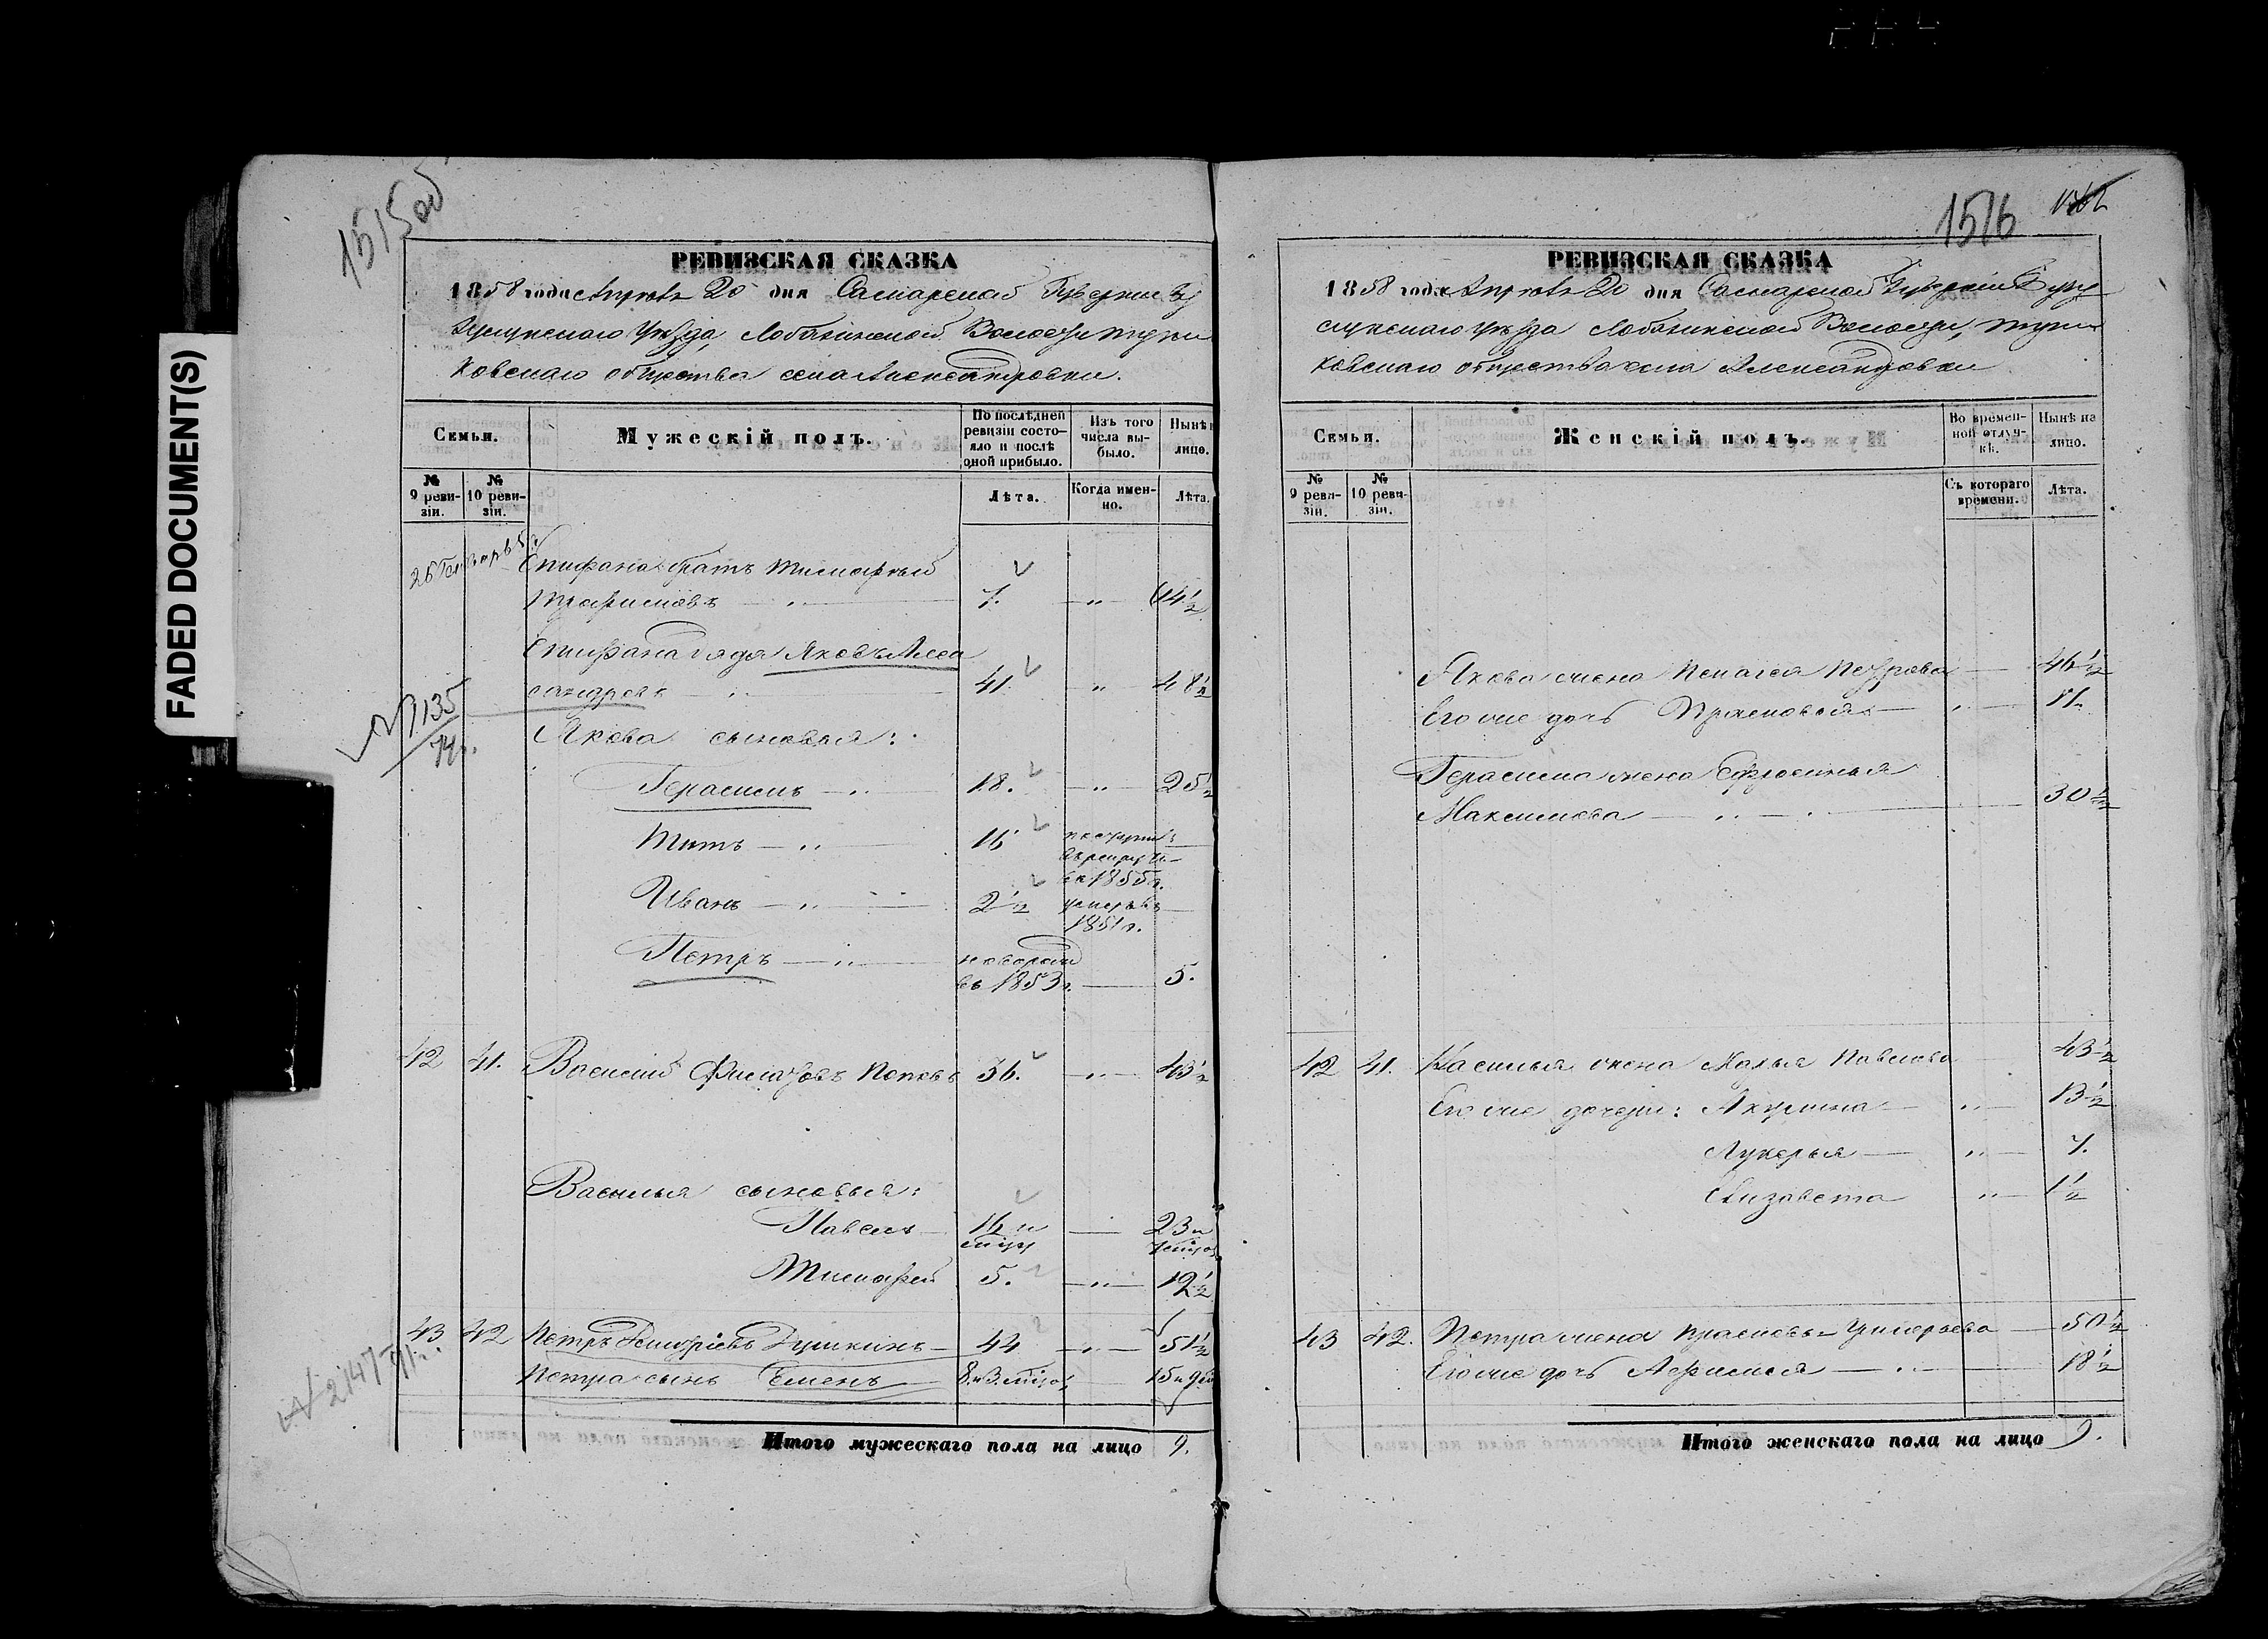 FADED DOCUMENT(S)
1515об
РЕВИЗСКАЯ СКАЗКА
1858 года Апреля 20 дня Самарской Губерніи Бу
зулукскаго Уѣзда, Лобазинской Волости
ковскаго общества села Александровки.
Семьи.
Мужескій полъ.
По послѣдней ревизіи состояло и послѣ оной прибыло.
Изъ того числа выбыло.
Нынѣ
лицо.
№ 9 ревизіи.
№ 10 ревизіи.
Лѣта.
Когда именно.
Лѣта.
Епифана братъ Тимофей
Трофимовъ — 7. — 14½
Епифана дядя Яковъ Алек
сандровъ — 41. — 48½
№ 1135
Якова сыновья:
Герасимъ — 18. — 25½
Титъ — 16
въ 1855 г.
Иванъ — 2½ умеръ въ
1851 г.
Петръ — новорож
въ 1853 г. — 5.
42 41. Василій Филатовъ Поповъ 36. — 43½
Василья сыновья:
Павелъ — 16 и — 23 и
Тимофей 5. — 12½
43 42 Петръ Дмитріевъ — 44 — 51½
Петра сынъ Семенъ 8. и 3. мѣся. 15 и
№ 2147
Итого мужескаго пола на лицо 9.
1516
РЕВИЗСКАЯ СКАЗКА
1858 года Апреля 20 дня Самарской Губерніи Бузу
лукскаго Уѣзда Лобазинской Волости,
ковскаго общества села Александровки
Семьи.
Женскій полъ.
Во временной отлучкѣ.
Нынѣ на лицо.
№ 9 ревизіи.
№ 10 ревизіи.
Съ котораго времени.
Лѣта.
Якова жена Пелагея Петрова — 46½
Его же дочь — 11.
Герасима жена Ефросинья
Максимова — 30½
42 41. Василья жена Марья Павлова 43½
Его же дочери: Акулина — 13½
Лукерья — 7.
Елизавета — 1½
43 42. Петра жена Прасковья Григорьева — 50½
Его же дочь Афимья — 18½
Итого женскаго пола на лицо 9.